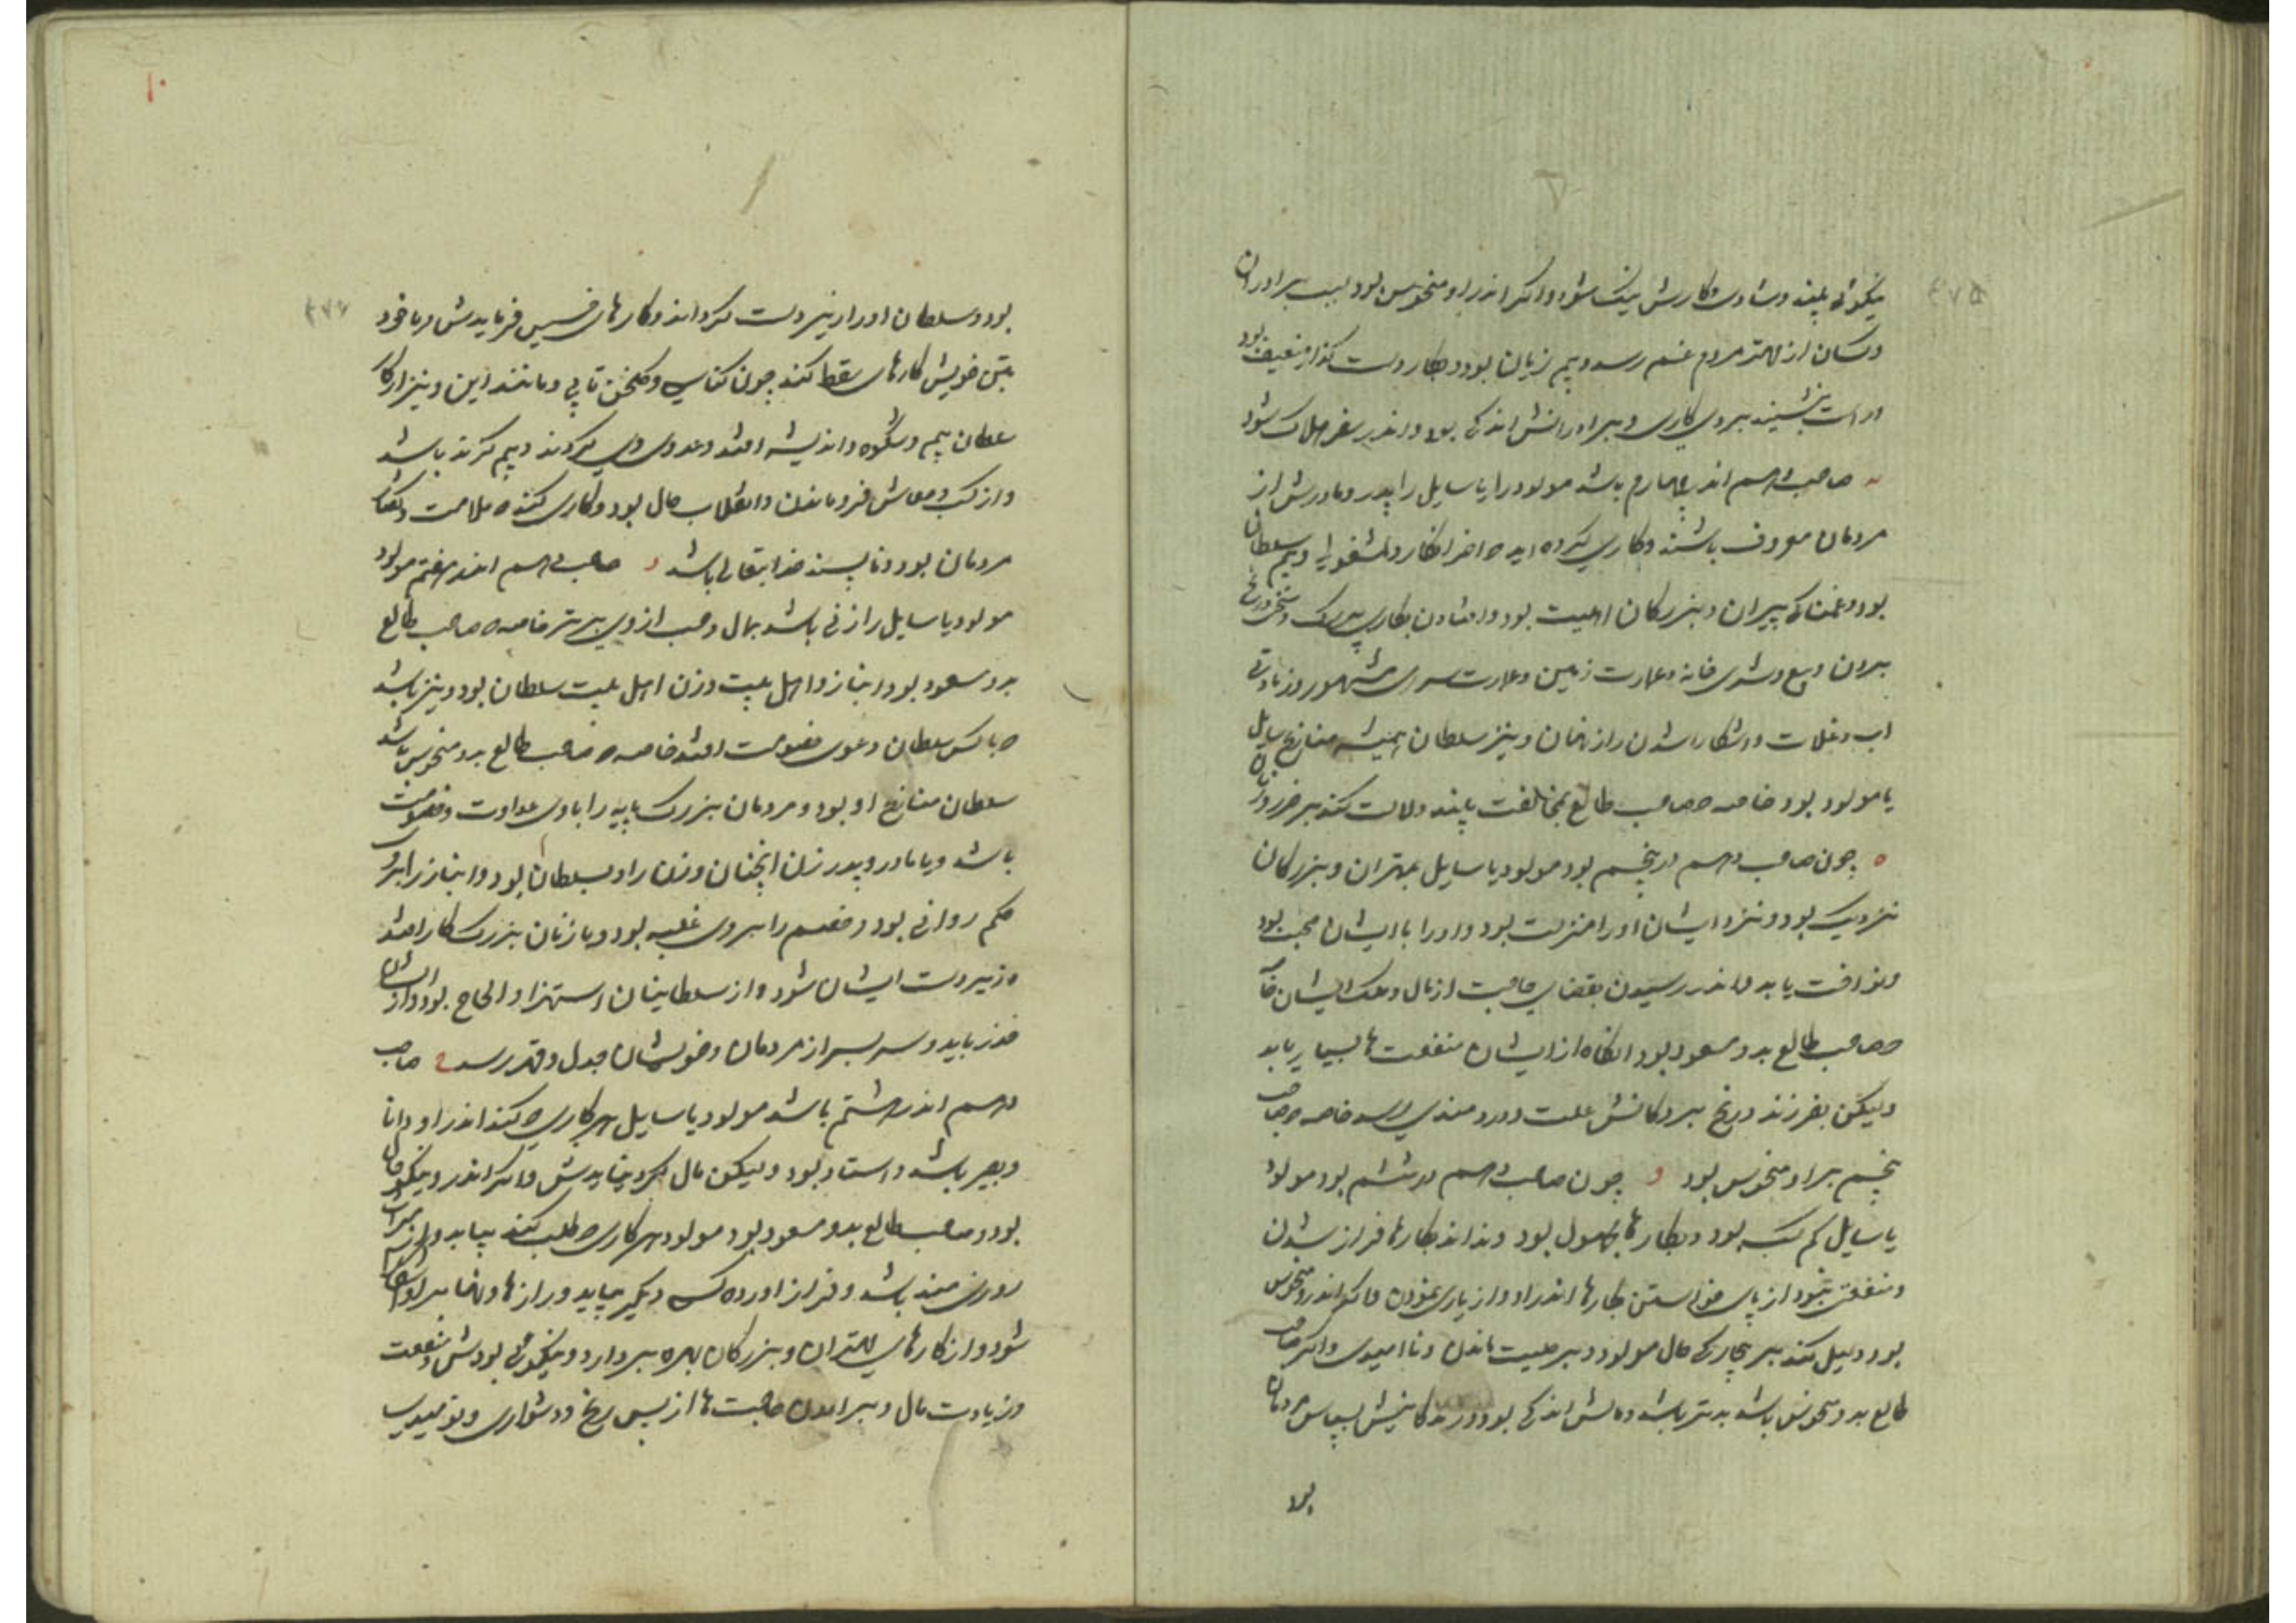 نیکوئی بیند و شادی و کارش نیک شود و اگر اندر او منحوس بود بسبب برادران
و کسان از مهتر مردم غم رسد و بیم زیان بود و بکار دست گذار ضعیف بود
بنشیند بروی کاری و برادرانش اندکی بود و اندر سفر هلاک شود
صاحب دهم اندر چهارم باشد مولود را یا سایل را پدر و مادرش از
مردمان معروف باشند و کاری کرده اید و مشغولی و بیم سلطان
بود و غمناکی پیران و بزرگان اهلبیت بود و افتادن بکاری بزرگ و رنج
بیرون و عمارت زمین و عمارت سرای مشهور و زیادتی
اب و غلات و اشکارا شدن راز نهان و نیز سلطان همیشه منازع سایل
یا مولود بود خاصه که صاحب طالع بمخالفت بیند دلالت کند بر ضرر و زیان
ه چون صاحب دهم در پنجم بود مولود یا سایل بمهتران و بزرگان
نزدیک بود و نزد ایشان او را منزلت بود و او را با ایشان محبت بود
یابد و اندر رسیدن بقضای حاجت از مال و ملک ایشان خاصه
که صاحب طالع بدو مسعود بود انگاه از ایشان منفعت ها بسیار یابد
ولیکن بفرزند و رنج علت و دردمندی رسد خاصه که صاحب
پنجم بر او منحوس بود و چون صاحب دهم در ششم بود مولود
یا سایل کم کسب بود و بکار ها مجهول بود و نداند بکارها فراز شدن
و منفعتی نبود از پای خواستن بکارها اندر او و از یاری نمودن و اگر اندرو منحوس
بود دلیل کند بر بیچارگی حال مولود و بر مصیبت ماندن و ناامیدی و اگر صاحب
طالع بدو منحوس باشد بدتر باشد و مالش اندکی بود و زندگانیش بسپاس مردمان
بود
۲۷۵
بود و سلطان او را زیردست گرداند و کارهای خسیس فرمایدش و یا خود
بتن خویش کارهای سقط کند چون کناسی و گلخن تابی و مانند این و نیز از کار
سلطان بیم و شکوه و اندیشه افتد و عدوی وی گردند و بیم گزند باشد
و از کسب و معاش فرو ماندن و انقلاب حال بود و کاری کند که ملامت
مردمان بود و ناپسند خدایتعالی باشد ز صاحب دهم اندر هفتم مولود
مولود یا سایل را زنی باشد بمال و حسب از وی برتر خاصه که صاحب طالع
بدو مسعود بود و انباز و اهل بیت و زن اهل بیت سلطان بود و نیز باشد
که با کس سلطان دعوی خصومت افتد خاصه که صاحب طالع بدو منحوس باشد
سلطان منازع او بود و مردمان بزرگ پایه را با وی عداوت و خصومت
باشد و یا مادر و پدر زن انچنان و زن را و سلطان بود و انباز را بر وی
حکم روانی بود و خصم را بر وی غلبه بود و با زنان بزرگ کار افتد
و زیردست ایشان شود و از سلطانیان استهزا و الحاح بود و از ایشان
حذر باید و سر بسر از مردمان و خویشان جدل و قهر رسد ح صاحب
دهم اندر هشتم باشد مولود یا سایل هر کاری که کند اندر او دانا
و بصیر باشد و استاد بود ولیکن مال گرد نیایدش و اگر اندرو نیکو حال
بود و صاحب طالع بدو مسعود بود مولود هر کاری که طلب کند بیابد و از میراث
روزی مند باشد و فراز اورده کس دیگر بیابد و رازها و نهانها بر او اشکارا
شود و از کارهای مهتران و بزرگان بهره بردارد و نیکوئی بودش و منفعت
و زیادت مال و برامدن حاجت ها از پس رنج و دشواری و نومیدی
۲۷۶
۱۰